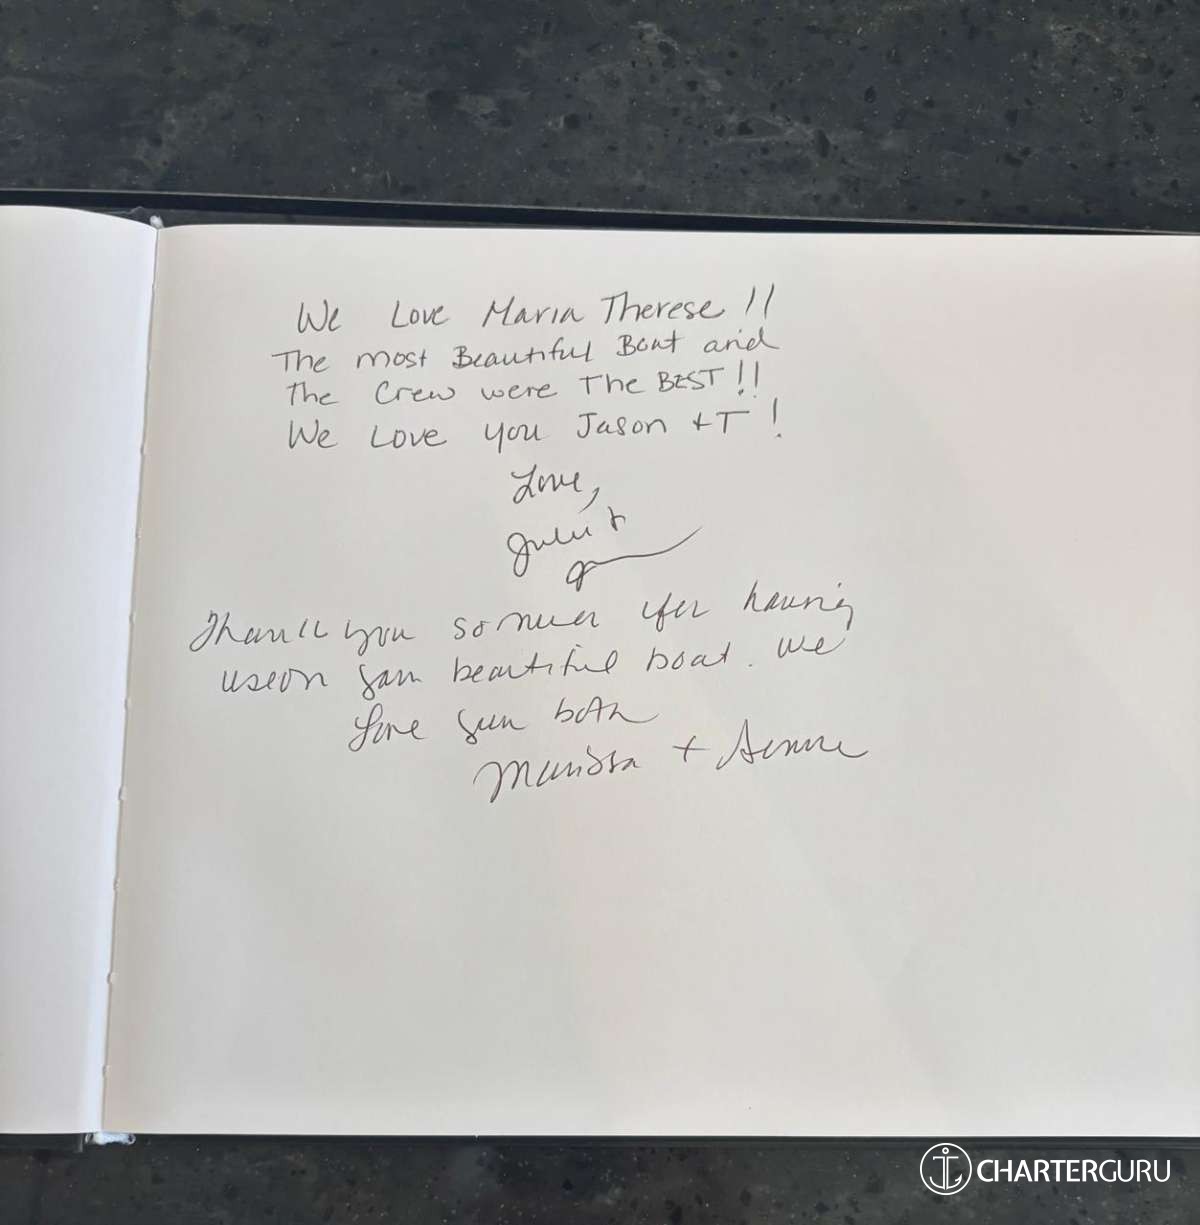 We Love Maria Therese!!
The most Beautiful Boat and
the Crew were The BEST!!
We Love you Jason + T!
Love,
Juli +
Thank you so much for having
us on your beautiful boat. We
Love you both
Marissa +
CHARTERGURU